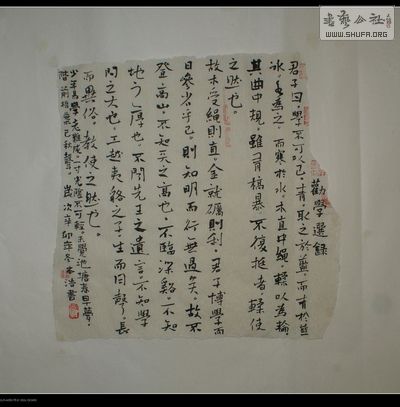 書艺公社
WWW.SHUFA.ORG
勸學選錄
君子曰學不可以已青取之於藍而青於藍
冰水為之而寒於水木直中繩輮以為輪
其曲中規雖有槁暴不復挺者輮使
之然也
故木受繩則直金就礪則利君子博學而
日參省乎己則知明而行無過矣故不
登高山不知天之高也不臨深谿不知
地之厚也不聞先王之遺言不知學
問之大也干越夷貉之子生而同聲長
而異俗教使之然也
少年易學老難成一寸光陰不可輕未覺池塘春草夢
階前梧葉已秋聲 歲次辛卯年冬 書